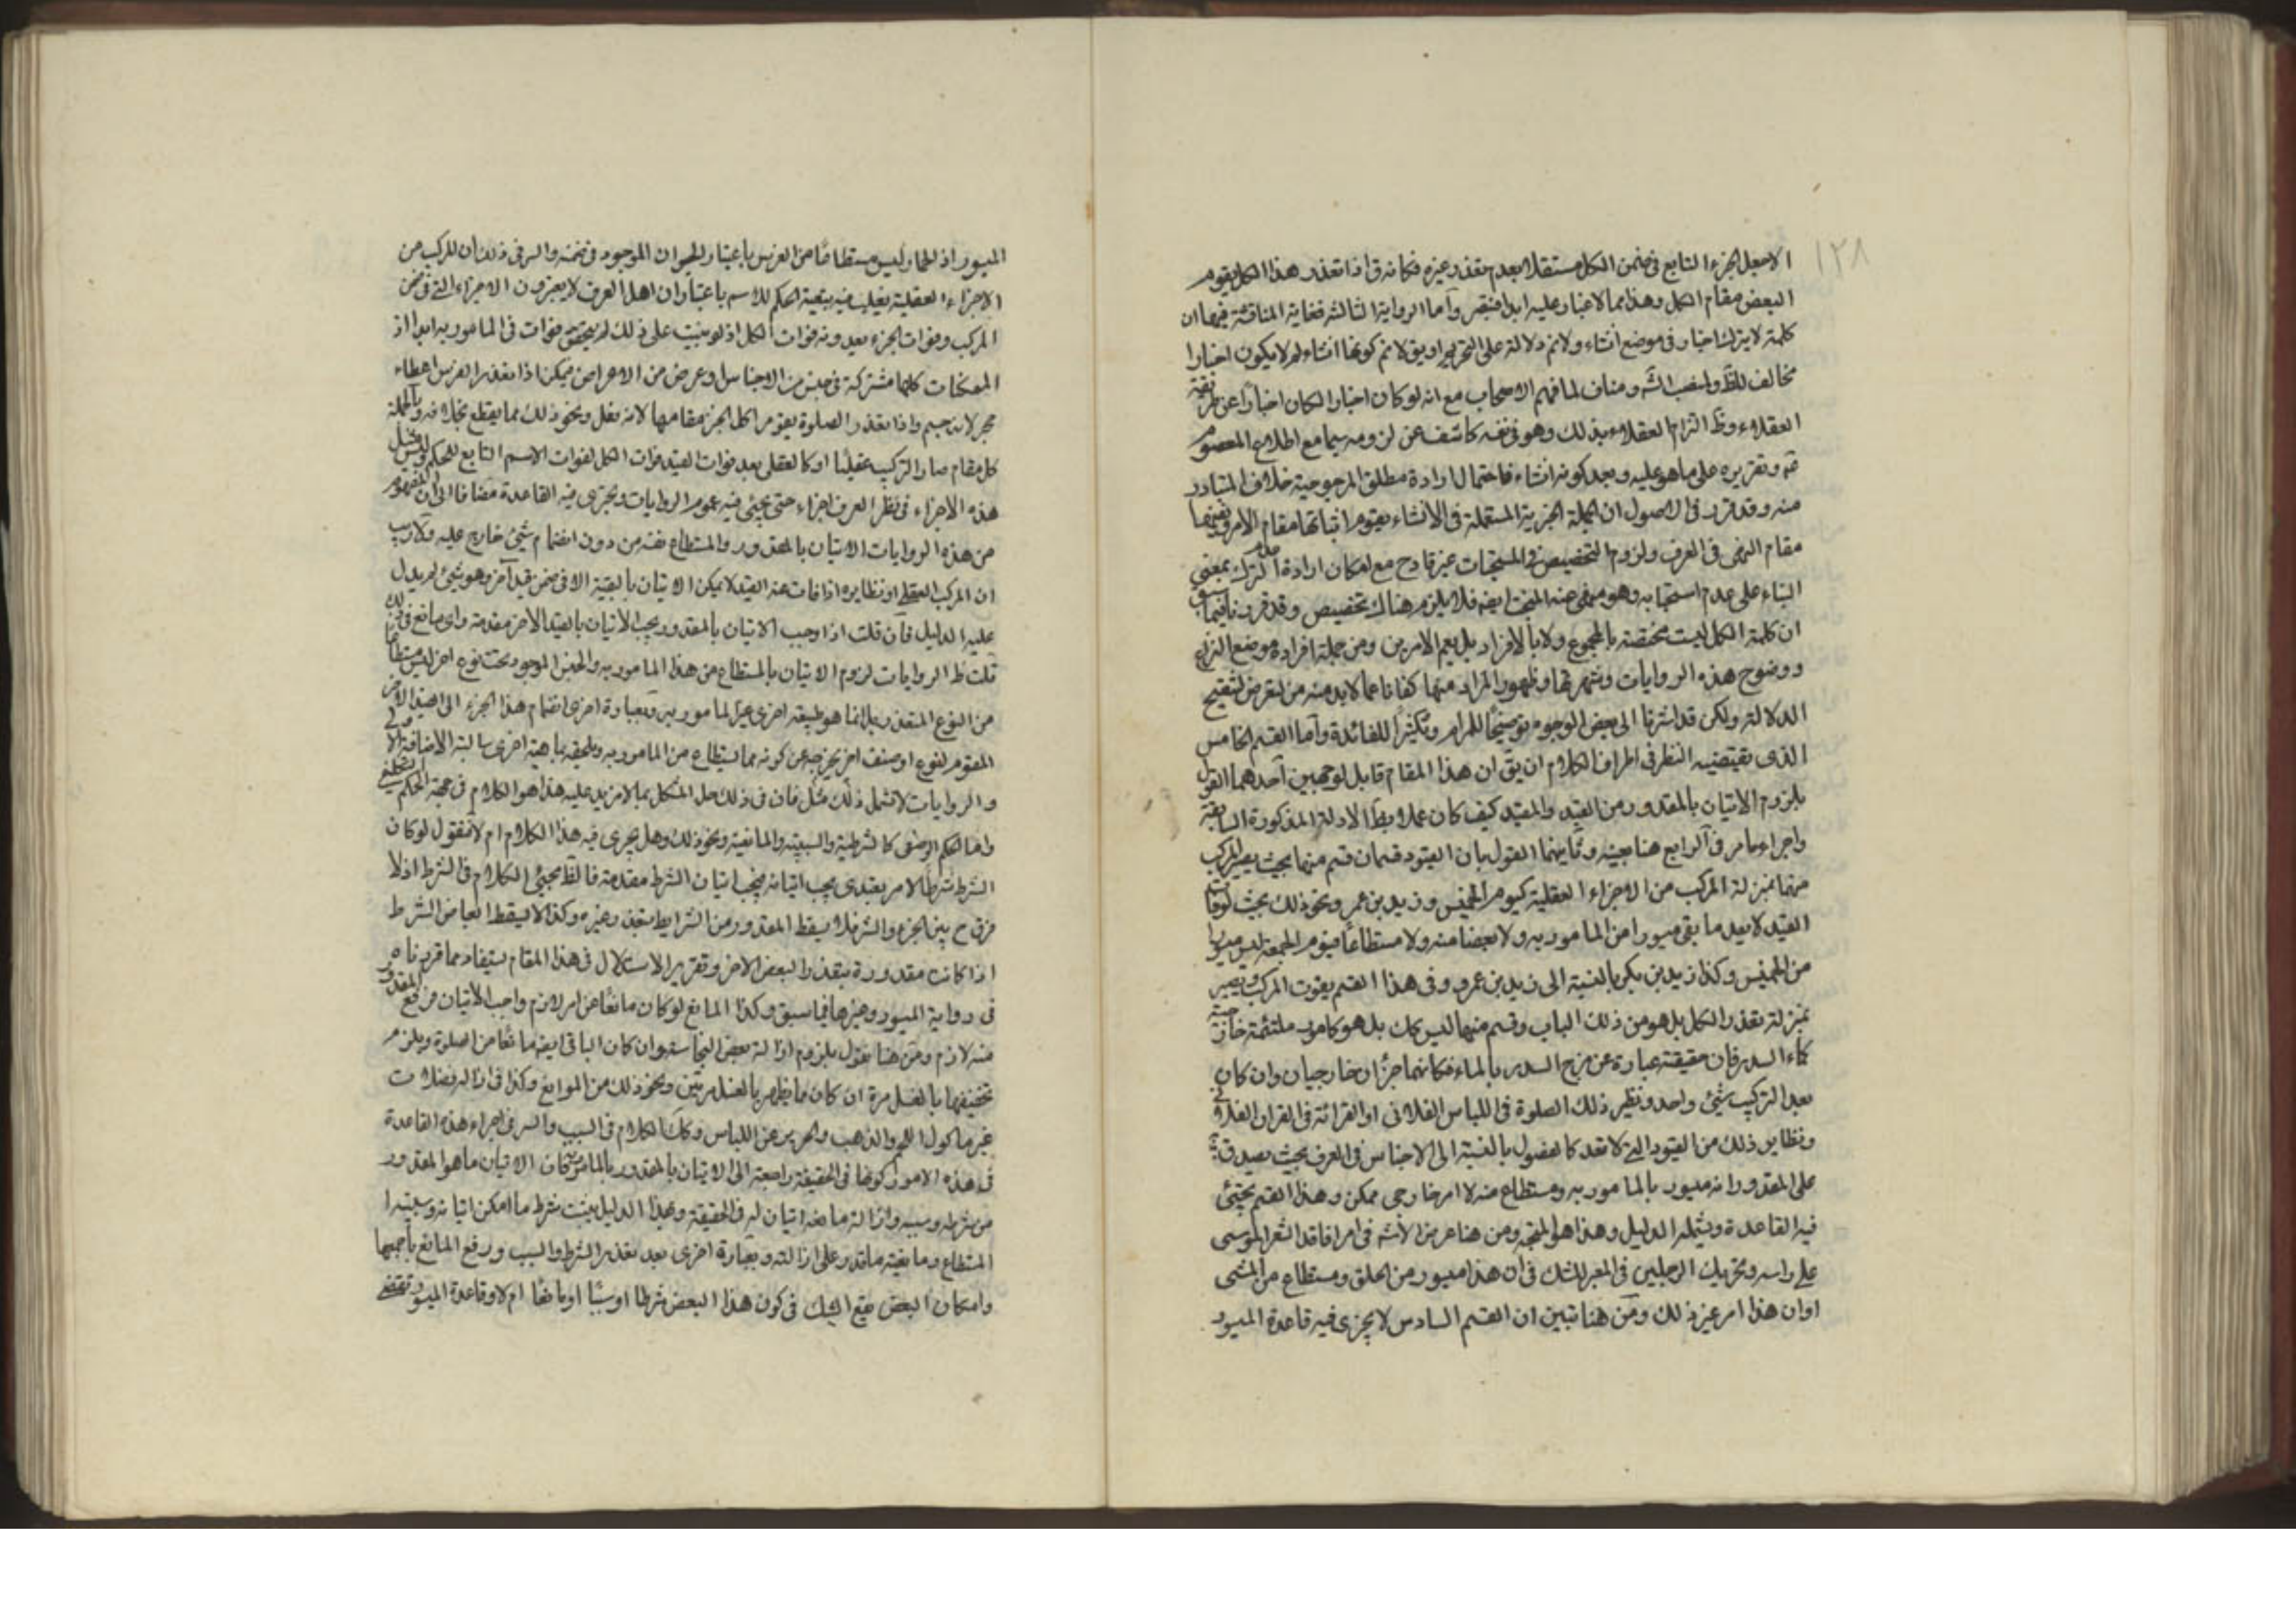 ١٢٨
الا جعل الجزء التابع في ضمن الكل مستقلا بعدم تعذر غيره فكانه ق اذا تعذر هذا الكل يقوم
البعض مقام الكل وهذا مما لا غبار عليه ابدا فتبصر وآما الرواية الثالثة فغاية المناقشة فيها ان
كلمة لا يترك اخبار في موضع انشاء ولا نم دلالته على التحريم او يق لا نم كونها انشاء لم لا يكون اخبارا
مخالف للظ ومناف لما فهم الاصحاب مع انه لو كان اخبارا لكان اخبارا عن طريقة
العقلاء وظ التزام العقلاء بذلك وهو في نفسه كاشف عن لزومه سيما مع اطلاع المعصوم
ع وتقريره على ما هو عليه وبعد كونه انشاء فاحتمال ارادة مطلق المرجوحية خلاف المتبادر
منه وقد قرر في الاصول ان الجملة الخبرية المستعملة في الانشاء يقوم اثباتها مقام الامر ونفيها
مقام النهي في العرف ولزوم التخصيص في المستحبات غير قادح مع امكان ارادة الترك بمعنى
البناء على عدم استحبابه وهو منهي عنه في المستحب ايضا فلا يلزم هناك تخصيص وقد قررنا فيما سبق
ان كلمة الكل ليست مختصة بالمجموع ولا بالافراد بل يعم الامرين ومن جملة افراده موضع النزاع
ووضوح هذه الروايات وشهرتها وظهور المراد منها كفانا عما لا بد منه من تعرض لتنقيح
الدلالة ولكن قد اشرنا الى بعض الوجوه توضيحا للمرام وتكثيرا للفائدة وآما القسم الخامس
الذي يقتضيه النظر في اطراف الكلام ان يق ان هذا المقام قابل لوجهين آحدهما القول
بلزوم الاتيان بالمقدور من القيد والمقيد كيف كان عملا بظ الادلة المذكورة السابقة
واجراء ما مر في الرابع هنا بعينه وثانيهما القول بان القيود قسمان قسم منها بحيث يصير المركب
منها بمنزلة المركب من الاجزاء العقلية كيوم الخميس وزيد بن عمرو ونحو ذلك بحيث لو فات
القيد لا يعد ما بقي ميسورا من المامور به ولا بعضا منه ولا مستطاعا فيوم الجمعة ليس ميسورا
من الخميس وكذا زيد بن بكر بالنسبة الى زيد بن عمرو وفي هذا القسم يفوت المركب ويصير
بمنزلة تعذر الكل بل هو من ذلك الباب وقسم منها ليس كك بل هو كامور ملتئمة خارجية
كماء السدر فان حقيقته عبارة عن مزج السدر بالماء فكانهما جزءان خارجيان وان كان
بعد التركيب شئ واحد ونظير ذلك الصلوة في اللباس الفلاني او القرائة في القران الفلاني
ونظاير ذلك من القيود التي لا تعد كالفصول بالنسبة الى الاجناس في العرف بحيث يصدق
على المقدور انه ميسور بالمامور به ومستطاع منه لا امر خارجي ممكن وهذا القسم يجئ
فيه القاعدة ويشمله الدليل وهذا هو المتجه ومن هنا عرض الاشكال في امرار فاقد الشعر الموسى
على راسه وتحريك الرجلين في المعبر للشك في ان هذا ميسور من الحلق ومستطاع من المشي
او ان هذا امر غير ذلك ومن هنا تبين ان القسم السادس لا يجري فيه قاعدة الميسور
الميسور اذ الحمار ليس مستطاعا من الفرس باعتبار الحيوان الموجود في ضمنه والسر في ذلك ان المركب من
الاجزاء العقلية يغلب فيه تبعية الحكم للاسم باعتبار ان اهل العرف لا يعتبرون الاجزاء التي في ضمن
المركب وفوات الجزء يعدونه فوات الكل اذ لو بنيت على ذلك لم يتحقق فوات في المامور به ابدا اذ
الممكنات كلها مشتركة في جنس من الاجناس او عرض من الاعراض فيمكن اذا تعذر الفرس اعطاء
حجر لانه جسم واذا تعذر الصلوة يقوم اكل الخبز مقامها لانه فعل ونحو ذلك مما يقطع بخلافه وبالجملة
كل مقام صار التركيب عقليا او كالعقلي يعد فوات القيد فوات الكل لفوات الاسم التابع للحكم وليس مثل
هذه الاجزاء في نظر العرف اجزاء حتى يجئ فيه عموم الروايات ويجري فيه القاعدة مضافا الى ان المفهوم
من هذه الروايات الاتيان بالمقدور والمستطاع نفسه من دون انضمام شئ خارج عليه ولا ريب
ان المركب العقلي او نظايره اذا فات عنه القيد لا يمكن الاتيان بالبقية الا في ضمن قيد آخر وهو شئ لم يدل
عليه الدليل فآن قلت اذا وجب الاتيان بالمقدور ويجب الاتيان بالقيد الاخر مقدمة واي مانع في ذلك
قلت ظ الروايات لزوم الاتيان بالمستطاع من هذا المامور به والجنس الموجود تحت نوع اخر ليس مستطاعا
من النوع المتعذر بل انما هو طبيعة اخرى غير المامور به وبعبارة اخرى انضمام هذا الجزء الى القيد الاخر
المقوم لنوع او صنف اخر يخرجه عن كونه مما يستطاع من المامور به ويلحقه بماهية اخرى
والروايات لا تشمل ذلك مثل فان في ذلك حل المشكل بما لا مزيد عليه هذا هو الكلام في جهة الحكم التكليفي
واما الحكم الوضعي كالشرطية والسببية والمانعية ونحو ذلك وهل يجري فيه هذا الكلام ام لا فنقول لو كان
الشرط شرطا لامر تعبدي يجب اتيانه فيجب اتيان الشرط مقدمة فالظ مجئ الكلام في الشرط اذ لا
فرق ح بين الجزء والشرط فلا يسقط المقدور من الشرايط بتعذر غيره وكذا لا يسقط ابعاض الشرط
اذا كانت مقدورة بتعذر البعض الاخر وتقرير الاستدلال في هذا المقام يستفاد مما قررناه
في رواية الميسور وغيرها فيما سبق وكذا المانع لو كان مانعا عن امر لازم واجب الاتيان فرفع المقدور
منه لازم ومن هنا نقول بلزوم ازالة بعض النجاسة وان كان الباقي ايضا مانعا من الصلوة ويلزم
تخفيفها بالغسل مرة ان كان ما يطهر بالغسل مرتين ونحو ذلك من الموانع وكذا في ازالة فضلات
غير ماكول اللحم والذهب والحرير عن اللباس وكك الكلام في السبب والسر في اجراء هذه القاعدة
في هذه الامور كونها في الحقيقة راجعة الى الاتيان بالمقدور بالمامور به فان الاتيان ما هو المقدور
من شرطه وسببه وازالة مانعه اتيان له في الحقيقة وهذا الدليل يثبت شرط ما امكن اتيانه وسببية
المستطاع ومانعية ما قدر على ازالته وبعبارة اخرى بعد تعذر الشرط والسبب ورفع المانع باجمعها
وامكان البعض يقع الشك في كون هذا البعض شرطا او سببا او مانعا ام لا وقاعدة الميسور تقتضي